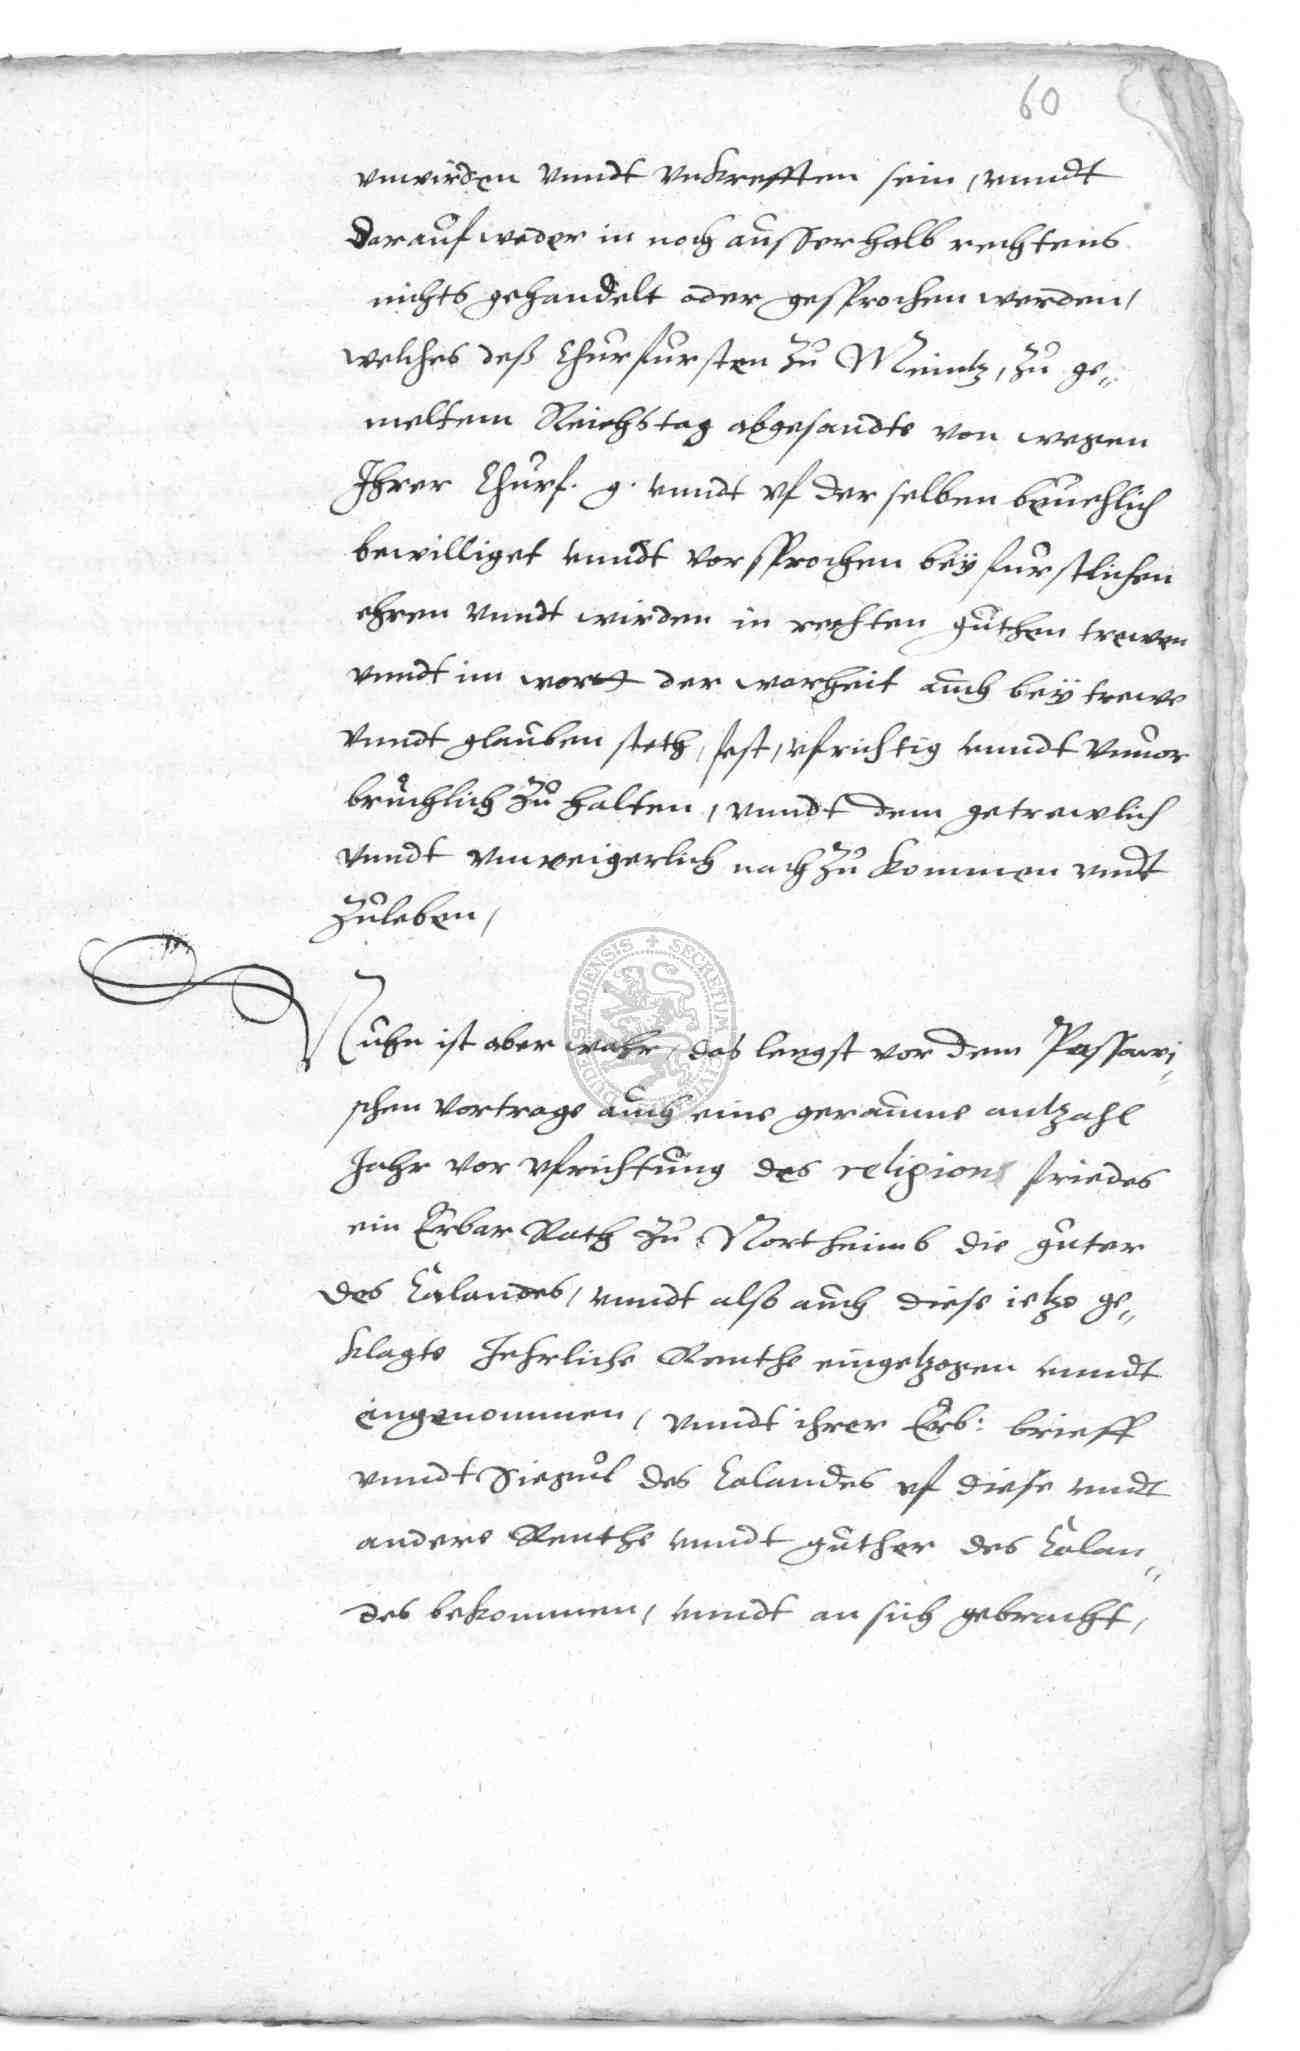 60
vnwirden vnndt vnkrefften sein, vnndt
darauf weder in noch ausserhalb rechtens
nichts gehandelt oder gesprochen werden,
welches deß Churfursten zu Meintz, zu ge„
meltem Reichstag abgesandte von wegen
Ihrer Churf. g. vnndt vf derselben beuehlich
bewilliget vnndt vorsprochen beÿ furstlichen
ehren vnndt wirden in rechten guthen trewen
vnndt im wortt der warheit auch beÿ trewe
vnndt glauben steth, fest, vfrichtig vnndt vnuor
bruchlich zu halten, vnndt dem getrewlich
vnndt vnweigerlich nach zu kommen vndt
zuleben,
Nuhn ist aber wahr, das lengst vor dem Passawi„
schen vortrage auch eine geraume antzahl
Jahr vor vfrichtung des religions friedes
ein Erbar Rath zu Northeimb die guter
des Calandes, vnndt also auch diese ietzo ge„
klagte Jehrliche Renthe eingetzogen vnndt
eingenommen, vnndt ihrer Erb: brieff
vnndt Siegul des Calandes vf diese vndt
andere Renthe vnndt guther des Calan„
des bekommen, vnndt an sich gebracht,
SECRETUM CIVI DUDERSTADIENSIS